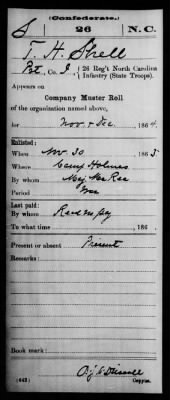 (Confederate.)
S 26 N.C.
T. H. Shell
Pvt, Co. I, 26 Reg't North Carolina
Infantry (State Troops).
Appears on
Company Muster Roll
of the organization named above,
for Nov. & Dec., 1864.
Enlisted:
When Nov. 30, 1863.
Where Camp Holmes
By whom Maj. McRae
Period War
Last paid:
By whom
To what time , 186
Present or absent Present
Remarks:
Book mark:
(642) Copyist.